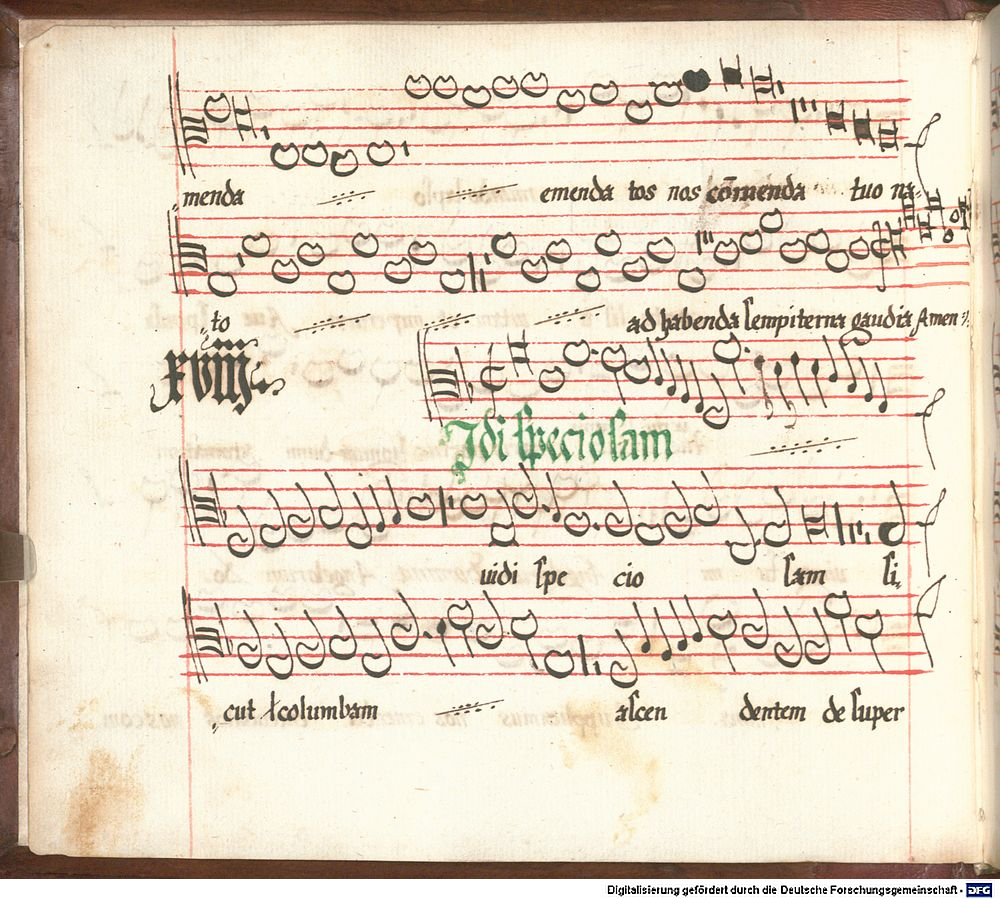 menda emenda tos nos cōmenda tuo na,
to ad habenda sempiterna gaudia Amen
xviij
Idi speciosam
vidi spe cio sam si,
cut columbam ascen dentem desuper
Digitalisierung gefördert durch die Deutsche Forschungsgemeinschaft - DFG